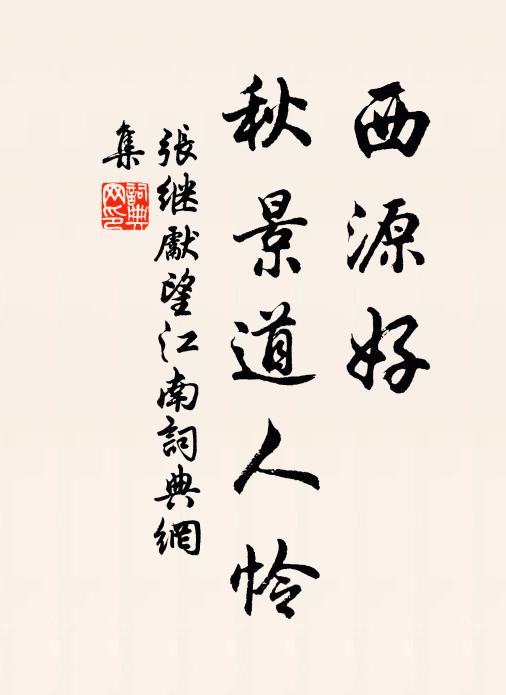 西源好
秋景道人怜
張继獻望江南詞典網
集
詞典網印